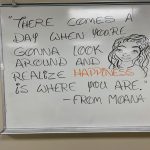 "THERE COMES A
DAY WHEN YOU'RE
GONNA LOOK
AROUND AND
REALIZE HAPPINESS
IS WHERE YOU ARE."
- FROM MOANA